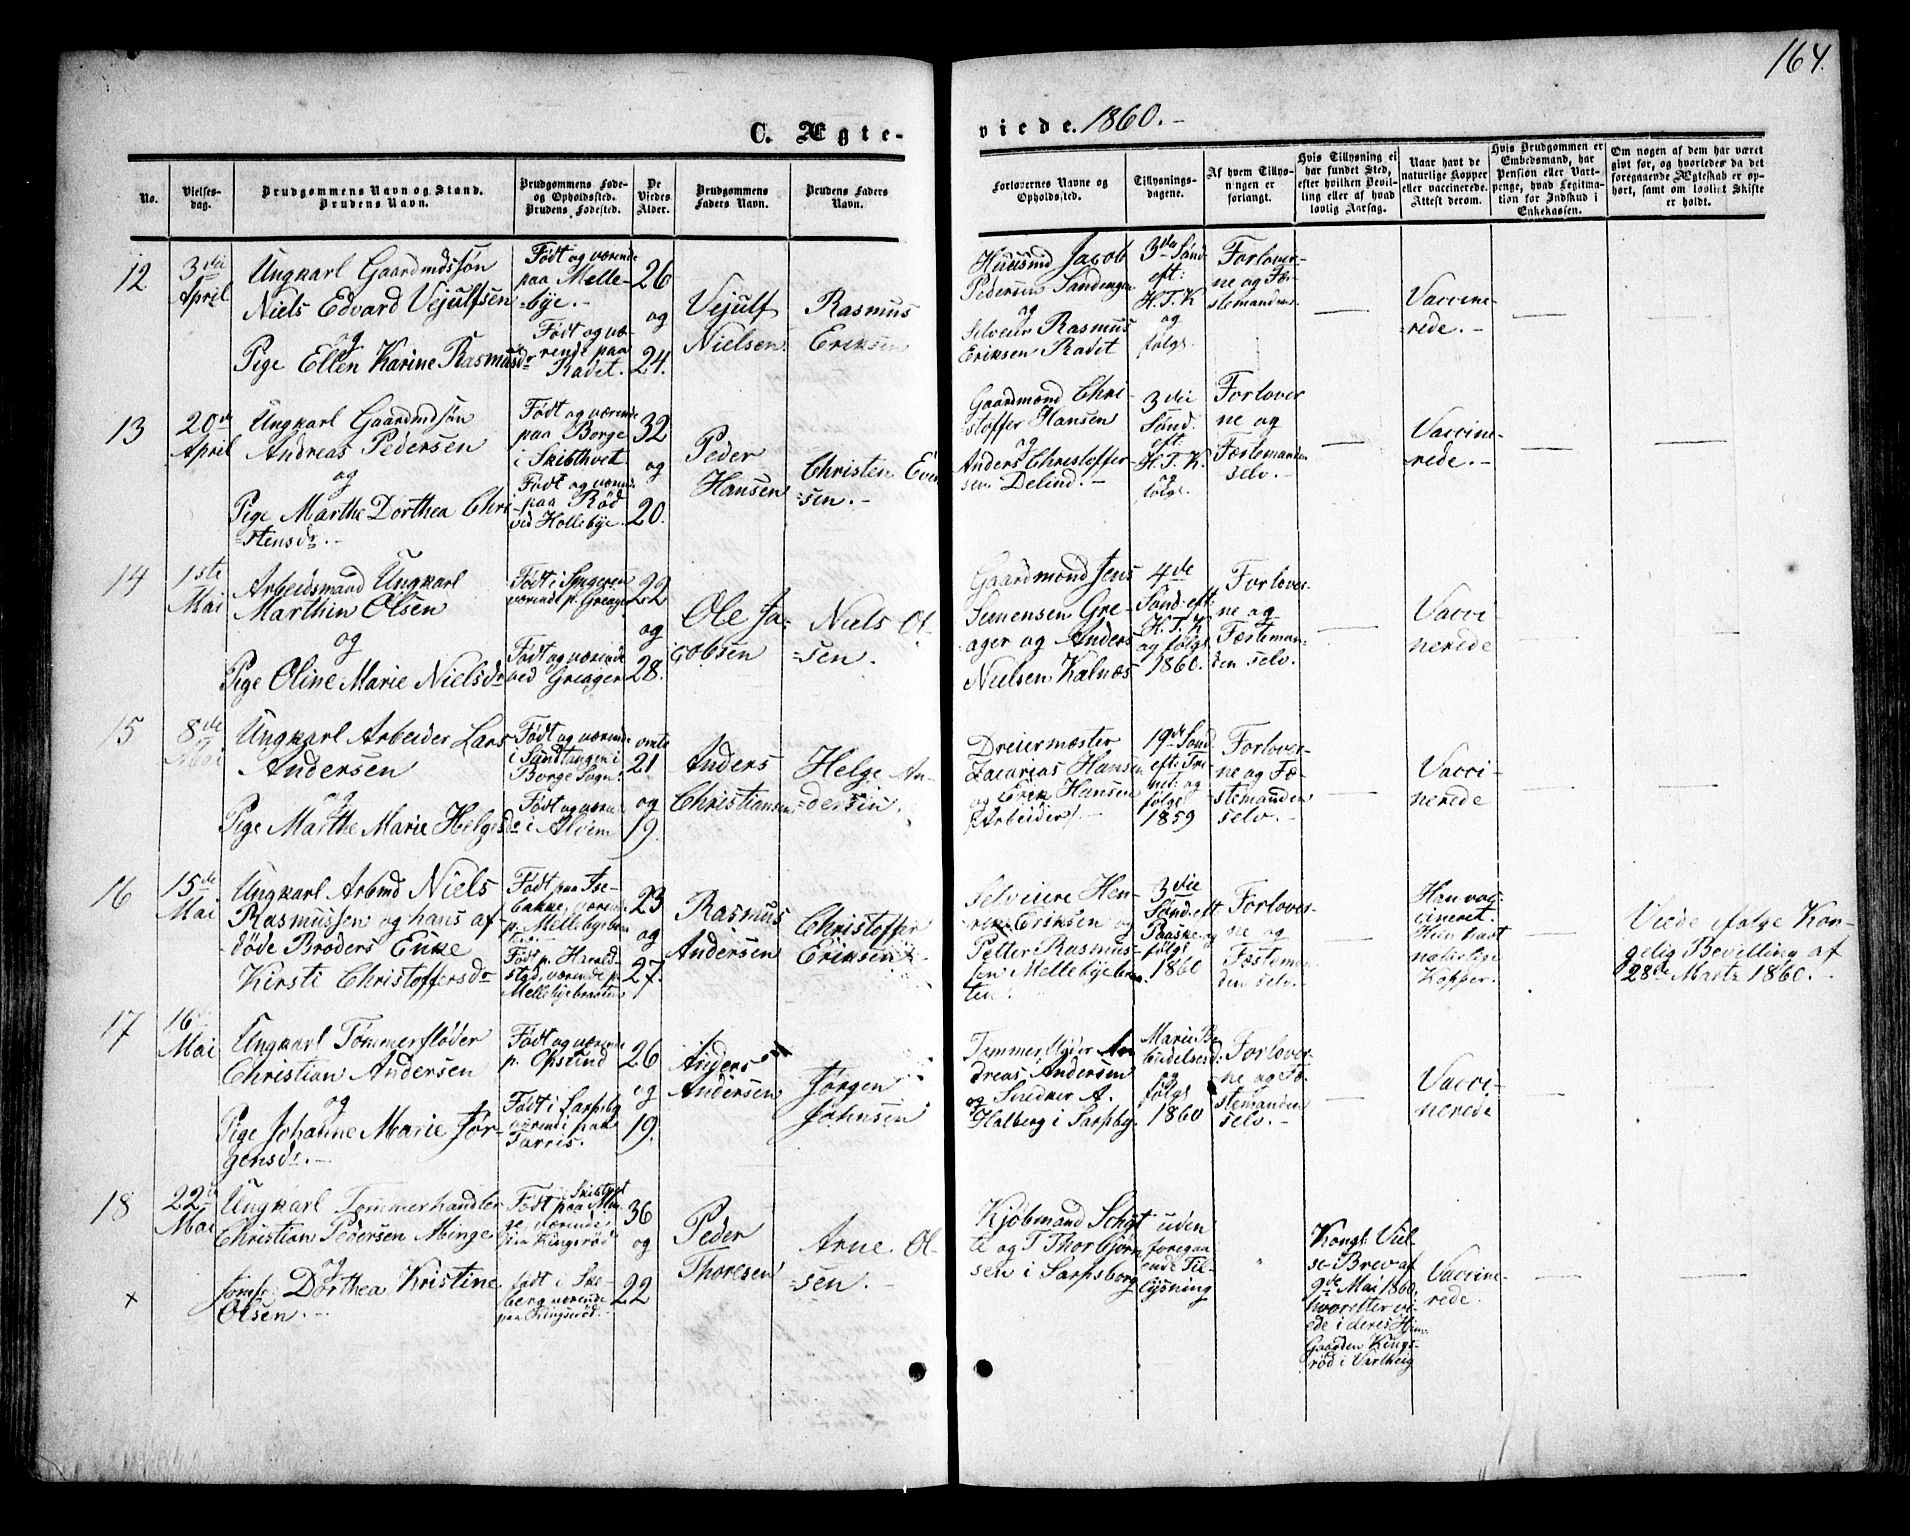 164.
C. Ægte-
viede. 1860.-
No.
Vielses-
dag.
Brudgommens Navn og Stand.
Brudens Navn.
Brudgommens Føde-
og Opholdssted.
Brudens Fødested.
De
Viedes
Alder.
Brudgommens
Faders Navn.
Brudens Faders
Navn.
Forlovernes Navne og
Opholdssted.
Tillysnings-
dagene.
Af hvem Tillys-
ningen er
forlangt.
Hvis Tillysning ei
har fundet Sted,
efter hvilken Bevil-
ling eller af hvad
lovlig Aarsag.
Naar havt de
naturlige Kopper
eller vaccinerede.
Attest derom.
Hvis Brudgommen er
Embedsmand, har
Pension eller Vart-
penge, hvad Legitima-
tion for Indskud i
Enkekassen.
Om nogen af dem har været
gift før, og hvorledes da det
foregaaende Ægteskab er op-
hørt, samt om lovligt Skifte
er holdt.
12
3die
April
Ungkarl Gaardmdssøn
Niels Edvard Vejulfsen
og
Pige Ellen Karine Rasmusdr
Født og værende
paa Melle-
-bye.-
Født og væ-
rende paa
Radet.
26
og
24.
Vejulf
Nielsen.
Rasmus
Eriksen
Huusmd Jacob
Pedersen Sandengen
og
Selveier Rasmus
Eriksen Radet
3die Sønd.
eft:
H.T.K
og
følgs.
Forlover-
ne og Fæ-
stemanden
Vaccine-
=rede.-
13
20de
April
Ungkarl Gaardmdsøn
Andreas Pedersen
og
Pige Marthe Dorthea Chri-
=stensdr.-
Født og værende
paa Borge
i Skibthvet
Født og værende
paa Rød
ved Hollebye.
32
og
20.
Peder
Hansen
Christen Even
=sen.-
Gaardmand Chri-
stoffer Hansen
og
Anders Christoffer-
sen Delind.-
3die
Sønd.
eft:
H.T.K.
og
følgs.
Forlover
ne og
Fæstemanden
selv.-
Vaccine-
rede.-
14
1ste
Mai
Arbeidsmand Ungkarl
Marthin Olsen
og
Pige Oline Marie Nielsdr
Født i Spydeberg
værende p. Greager
Født og værende
ved Greager
22
og
28.
Ole Ja-
cobsen
Niels Ol-
=sen.
Gaardmand Jens
Simensen Gre-
ager og Anders
Nielsen Kalnæs
4de
Sønd: eft
H.T.K
og følgs
1860.
Forlover-
ne og
Fæsteman-
den selv.
Vacci
nerede
15
8de
Mai
Ungkarl Arbeider Lars
Andersen
og
Pige Marthe Marie Helgesdr
Født og værende
i Sandtangen i
Borge Sogn.
Født og være-
de i Alvim
omtr
21
og
19.
Anders
Christiansen
Helge An-
=dersen.
Dreiermester
Zacarias Hansen
og Erek Hansen
(Arbeider).-
19de Sønd
eft: Tri-
net: og
følgs
1859
Forlover-
ne og Fæ-
stemanden
selv.-
Vacci-
nerede
16
15de
Mai
Ungkarl Arbmd Niels
Rasmussen og hans af-
døde Broders Enke
Kirsti Christoffersdr
Født paa Ise-
bakke, værende
p. Mellebybraa
ten.-
Født p. Harald-
stad, værende p.
Mellebyebraaten
23
og
27.
Rasmus
Andersen
Christoffer
Eriksen
Selveiere Hen-
rik Eriksen og
Petter Rasmus-
sen Mellebyebraa-
ten.
3die
Sønd. eft
Paaske og
følgs
1860
Forlover-
ne og
Fæsteman-
den selv.
Han vac
cineret.
Hun havt
naturlige
Kopper.
Viede ifølge Kon-
gelig Bevilling af
28de Marts 1860.-
17
16
Mai
Ungkarl Tømmerfløder
Christian Andersen
og
Pige Johanne Marie Jør-
gensdr.-
Født og værende
p. Opsund
Født i Sarpsbg
værende paa
Tarris.
26
og
19.
Anders
Andersen
Jørgen
Johnsen
Tømmerfløder An
dreas Andersen
og Snedker A.
Halberg i Sarpbg.
Marie Be
budelsesd:
og
følgs
1860
Forlover-
ne og Fæ-
stemanden
selv.-
Vacci
nerede
18
22de
Mai
Ungkarl Tømmerhandler
Christian Pedersen Minge
og
Jomfr. Dorthea Kristine
Olsen.-
i Skibtvet
Født paa Min-
ge, værende
paa Kingsrød
født i Ske-
berg værende
paa Kingsrød.-
36
og
22
Peder
Thoresen
Arne Ol-
=sen.-
Kjøbmand Schyt
te og T Thorbjørn
sen i Sarpsborg
uden
foregaa
ende Til
lysning
Kongl: Viel
se-Brev af
9de Mai 1860,
hvoretter vi-
ede i deres Hjem
Gaarden Kings-
rød i Varteig
Vaccine-
rede.
x